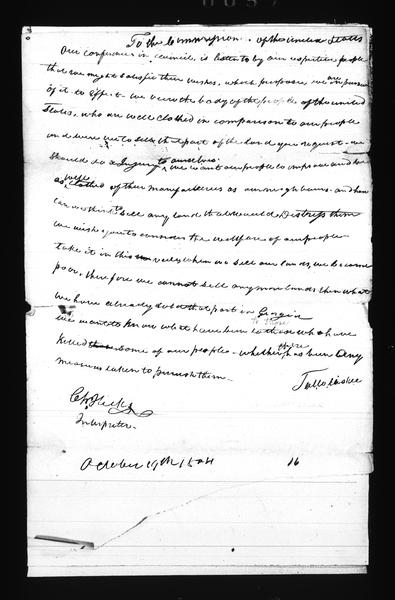 To the Commission. of the united States
Our confidence in council, is listen to by our respective people
that we might satisfie their wishes, whose purposes we are in pursu
of it to effect - we view the body of the people of the united
States, who are well clothed in comparison to our people
and were we to sell that part of the land you request - we
should do a Injury to ourselves. we want our people to improve and be
as well clothed of their manufacteries as our neighbours. and how
can we think to sell any land that would Distress them
we wish you to consider the wellfare of our people
take it in this view when we sell our lands we become
poor, therefore we cannot sell any more lands then what
we have already sold that part in Georgia
we want to know what have been to those who have
killed some of our people - whether there has been any
measures taken to punish them.
Tallotiskee
Ch. Hicks
Interpreter.
October 19th 1804
16